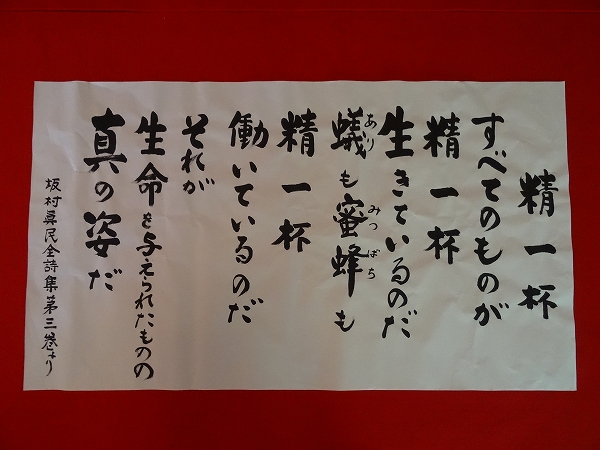 精一杯
すべてのものが
精一杯
生きているのだ
蟻も蜜蜂も
あり
みつばち
精一杯
働いているのだ
それが
生命を与えられたものの
真の姿だ
坂村真民全詩集第三巻より